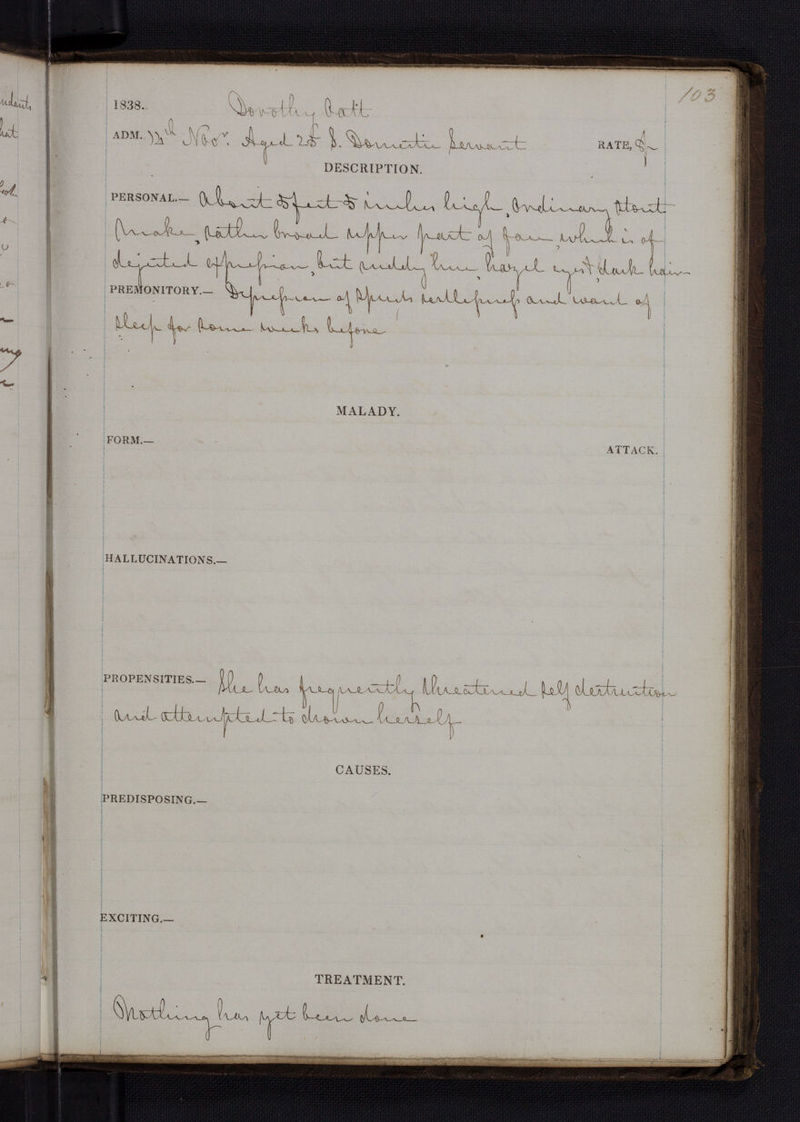 103
1838. Dorothy Batt
ADM. 14th Novr. Aged 25 S. Domestic Servant RATE,
DESCRIPTION.
PERSONAL.— About 5 feet 5 inches high, Ordinary Stout
Make, rather broad upper part of face which is of
dejected expression, but ruddy hue, hazel eyes & dark hair
PREMONITORY.— Depression of Spirits restlessness and want of
Sleep for some weeks before
MALADY.
FORM.—
ATTACK.
HALLUCINATIONS.—
PROPENSITIES.— She has frequently threatened self destruction
and attempted to drown herself
CAUSES.
PREDISPOSING.—
EXCITING.—
TREATMENT.
Nothing has yet been done